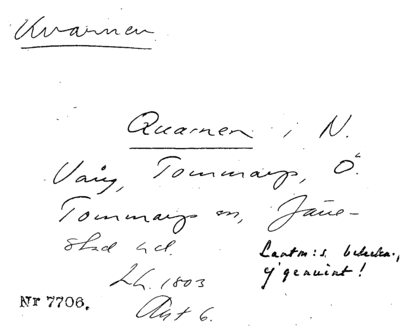 Kvarnen
Quarnen i N.
Vång, Tommarps, Ö.
Tommarps sn, Järre-
stad hd.
Lantm:s beteckn.,
ej genuint!
LA. 1803
Akt 6.
Nr 7706.